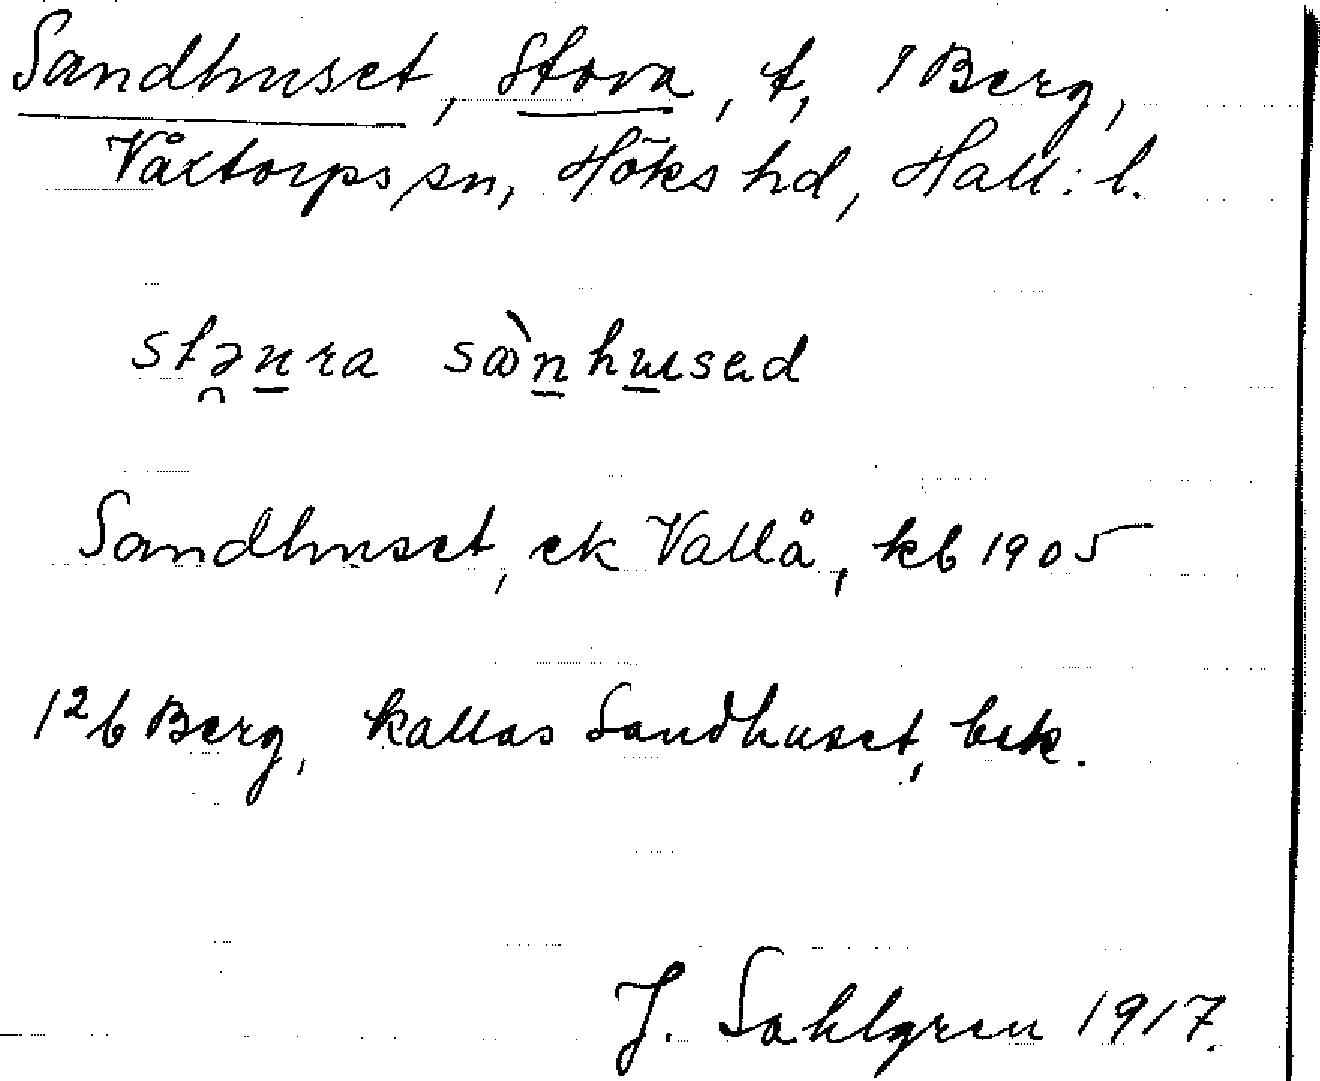 Sandhuset, Stora, t, i Berg,
Våxtorps sn, Höks hd, Hall: l.
stəura sànhusad
Sandhuset, ek Vallå, kb 1905
1²6 Berg, kallas Sandhuset, bek.
J. Sahlgren 1917.